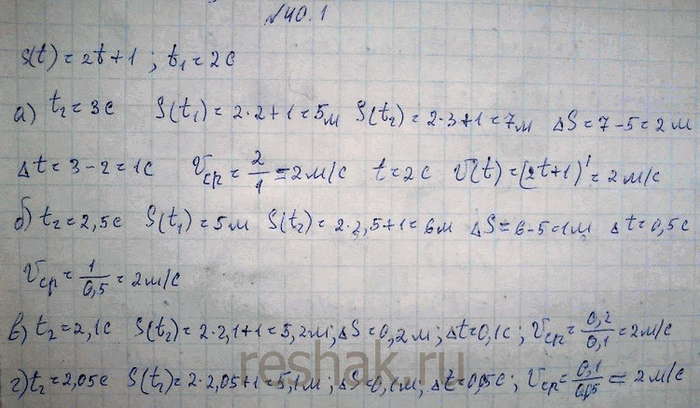 №40.1
S(t) = 2t+1 ; t₁ = 2с
а) t₂ = 3с S(t₁) = 2·2+1 = 5м S(t₂) = 2·3+1 = 7м ΔS = 7-5 = 2м
Δt = 3-2 = 1с Vср = 2/1 = 2м/с t = 2с V(t) = (2t+1)' = 2м/с
б) t₂ = 2,5с S(t₁) = 5м S(t₂) = 2·2,5+1 = 6м ΔS = 6-5=1м Δt = 0,5с
Vср = 1/0,5 = 2м/с
в) t₂ = 2,1с S(t₂) = 2·2,1+1 = 5,2м; ΔS = 0,2м; Δt = 0,1с; Vср = 0,2/0,1 = 2м/с
г) t₂ = 2,05с S(t₂) = 2·2,05+1 = 5,1м; ΔS = 0,1м; Δt = 0,05с; Vср = 0,1/0,05 = 2м/с
reshak.ru